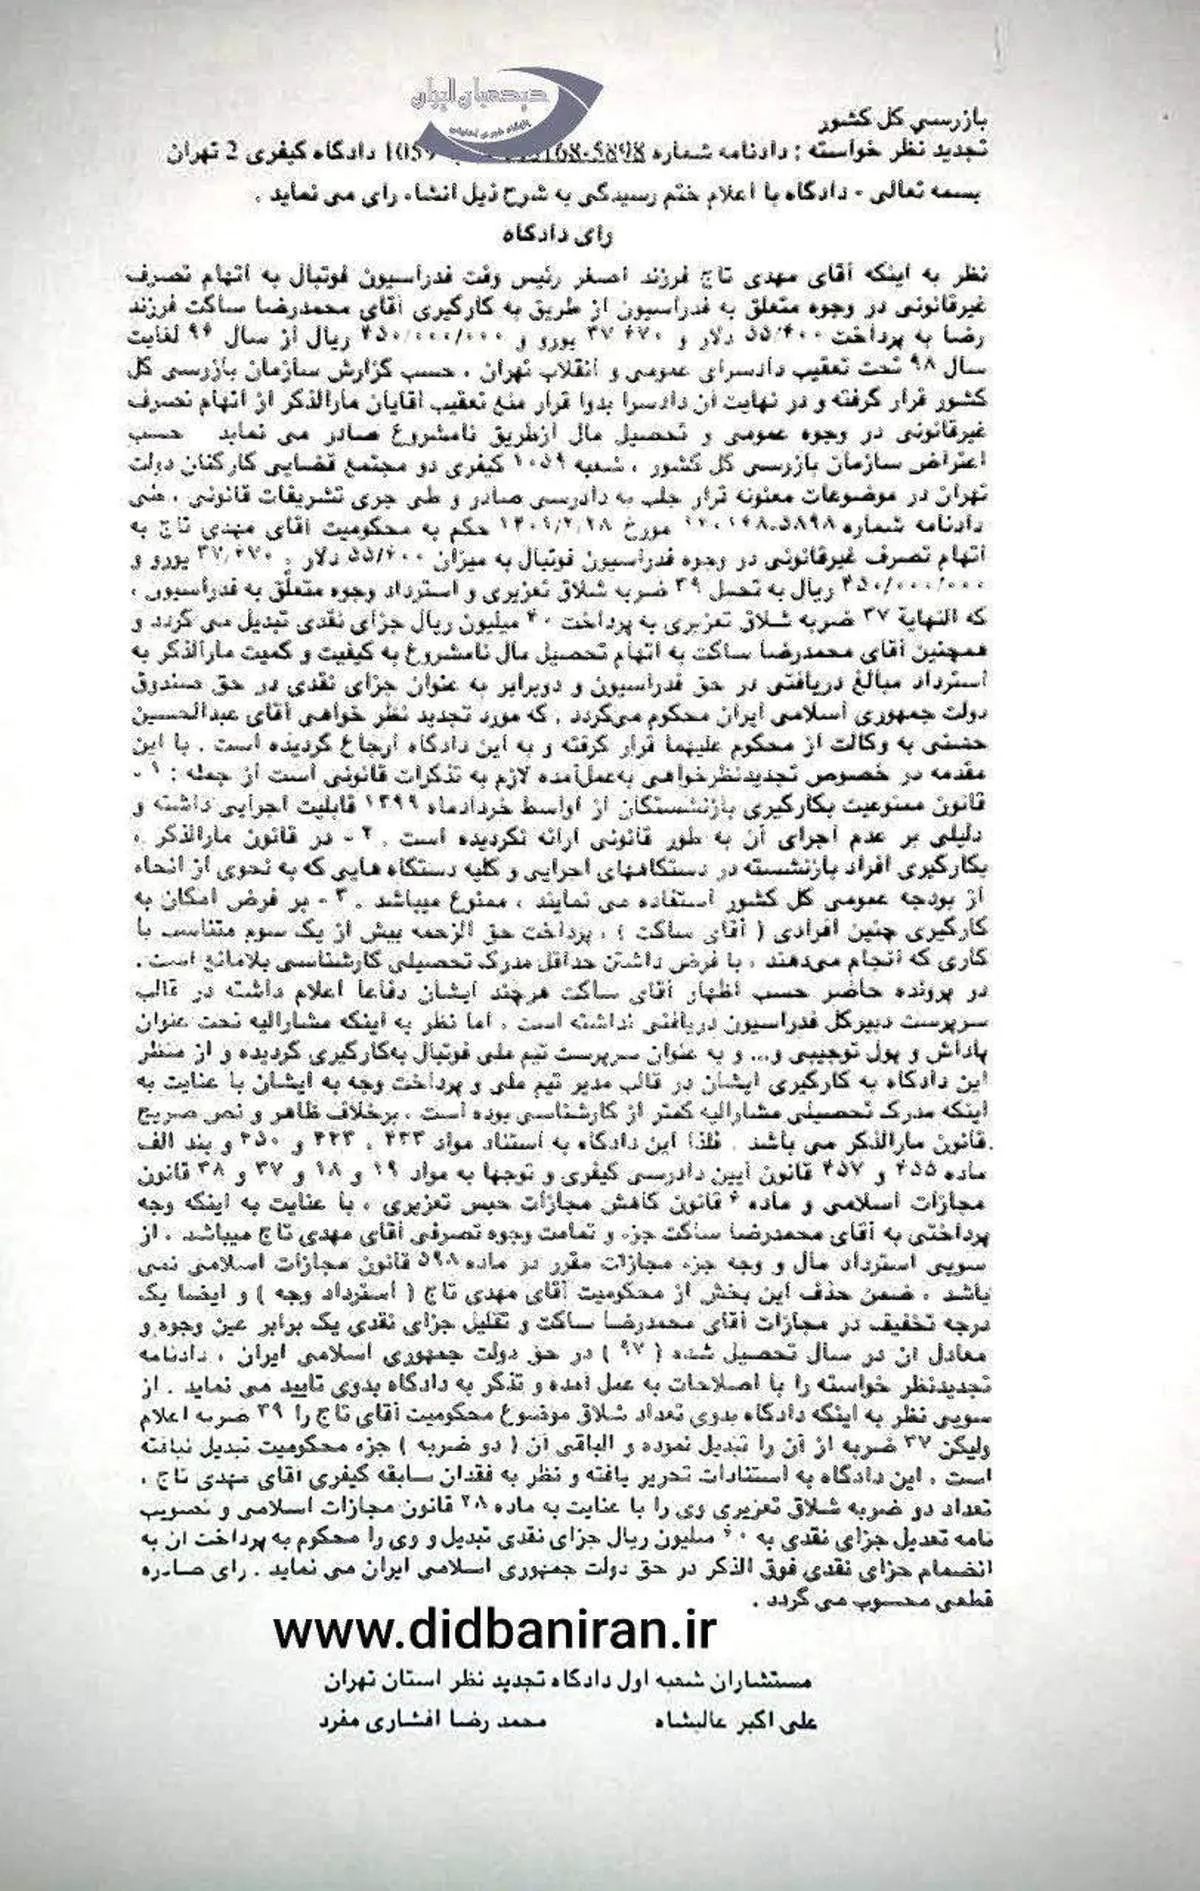 دیدهبان ایران
بازرسی کل کشور
تجدید نظر خواسته : دادنامه شماره دادگاه کیفری 2 تهران
بسمه تعالی - دادگاه با اعلام ختم رسیدگی به شرح ذیل انشاء رای می نماید .
رای دادگاه
نظر به اینکه آقای مهدی تاج فرزند اصغر رئیس وقت فدراسیون فوتبال به اتهام تصرف
غیرقانونی در وجوه متعلق به فدراسیون از طریق به کارگیری آقای محمدرضا ساکت فرزند
رضا به پرداخت ۵۵/۴۰۰ دلار و ۳۷۶۷۰ یورو و ۴۵۰/۰۰۰/۰۰۰ ریال از سال ۹۶ لغایت
سال ۹۸ تحت تعقیب دادسرای عمومی و انقلاب تهران ، حسب گزارش سازمان بازرسی کل
کشور قرار گرفته و در نهایت آن دادسرا بدوا قرار منع تعقیب آقایان مارالذکر از اتهام تصرف
غیرقانونی در وجوه عمومی و تحصیل مال ازطریق نامشروع صادر می نماید حسب
اعتراض سازمان بازرسی کل کشور ، شعبه ۱۰۵۹ کیفری دو مجتمع قضایی کارکنان دولت
تهران در موضوعات معنونه قرار جلب به دادرسی صادر و طی جری تشریفات قانونی ، طی
دادنامه شماره مورخ ۱۴۰۱/۲/۲۸ حکم به محکومیت آقای مهدی تاج به
اتهام تصرف غیرقانونی در وجوه فدراسیون فوتبال به میزان ۵۵/۴۰۰ دلار و ۳۷/۶۷۰ یورو و
۴۵۰/۰۰۰/۰۰۰ ریال به تحمل ۳۹ ضربه شلاق تعزیری و استرداد وجوه متعلق به فدراسیون ،
که النهایة ۳۷ ضربه شلاق تعزیری به پرداخت ۴۰ میلیون ریال جزای نقدی تبدیل می گردد و
همچنین آقای محمدرضا ساکت به اتهام تحصیل مال نامشروع به کیفیت و کمیت مارالذکر به
استرداد مبالغ دریافتی در حق فدراسیون و دوبرابر به عنوان جزای نقدی در حق صندوق
دولت جمهوری اسلامی ایران محکوم می‌گردد . که مورد تجدید نظر خواهی آقای عبدالحسین
به وکالت از محکوم علیهما قرار گرفته و به این دادگاه ارجاع گردیده است . با این
مقدمه در خصوص تجدیدنظرخواهی به‌عمل‌آمده لازم به تذکرات قانونی است از جمله : ۱ -
قانون ممنوعیت بکارگیری بازنشستگان از اواسط خردادماه ۱۳۹۹ قابلیت اجرایی داشته و
دلیلی بر عدم اجرای آن به طور قانونی ارائه نگردیده است . ۲ - در قانون مارالذکر ،
بکارگیری افراد بازنشسته در دستگاههای اجرایی و کلیه دستگاه هایی که به نحوی از انحاء
از بودجه عمومی کل کشور استفاده می نمایند ، ممنوع میباشد . ۳ - بر فرض امکان به
کارگیری چنین افرادی ( آقای ساکت ) ، پرداخت حق الزحمه بیش از یک سوم متناسب با
کاری که انجام می‌دهند ، با فرض داشتن حداقل مدرک تحصیلی کارشناسی بلامانع است .
در پرونده حاضر حسب اظهار آقای ساکت هرچند ایشان دفاعا اعلام داشته در قالب
سرپرست دبیرکل فدراسیون دریافتی نداشته است ، اما نظر به اینکه مشارالیه تحت عنوان
پاداش و پول توجیبی و... و به عنوان سرپرست تیم ملی فوتبال به‌کارگیری گردیده و از منظر
این دادگاه به کارگیری ایشان در قالب مدیر تیم ملی و پرداخت وجه به ایشان با عنایت به
اینکه مدرک تحصیلی مشارالیه کمتر از کارشناسی بوده است ، برخلاف ظاهر و نص صریح
قانون مارالذکر می باشد . فلذا این دادگاه به استناد مواد ۴۳۳ ، ۴۴۳ و ۴۵۰ و بند الف
ماده ۴۵۵ و ۴۵۷ قانون آیین دادرسی کیفری و توجها به مواد ۱۹ و ۱۸ و ۳۷ و ۳۸ قانون
مجازات اسلامی و ماده ۶ قانون کاهش مجازات حبس تعزیری ، با عنایت به اینکه وجه
پرداختی به آقای محمدرضا ساکت جزء و تمامت وجوه تصرفی آقای مهدی تاج میباشد . از
سویی استرداد مال و وجه جزء مجازات مقرر در ماده ۵۹۸ قانون مجازات اسلامی نمی
باشد ، ضمن حذف این بخش از محکومیت آقای مهدی تاج ( استرداد وجه ) و ایضا یک
درجه تخفیف در مجازات آقای محمدرضا ساکت و تقلیل جزای نقدی یک برابر عین وجوه و
معادل آن در سال تحصیل شده ( ۹۷ ) در حق دولت جمهوری اسلامی ایران ، دادنامه
تجدیدنظر خواسته را با اصلاحات به عمل آمده و تذکر به دادگاه بدوی تایید می نماید . از
سویی نظر به اینکه دادگاه بدوی تعداد شلاق موضوع محکومیت آقای تاج را ۳۹ ضربه اعلام
ولیکن ۳۷ ضربه از آن را تبدیل نموده و الباقی آن ( دو ضربه ) جزء محکومیت تبدیل نیافته
است ، این دادگاه به استنادات تحریر یافته و نظر به فقدان سابقه کیفری آقای مهدی تاج ،
تعداد دو ضربه شلاق تعزیری وی را با عنایت به ماده ۲۸ قانون مجازات اسلامی و تصویب
نامه تعدیل جزای نقدی به ۶۰ میلیون ریال جزای نقدی تبدیل و وی را محکوم به پرداخت آن به
انضمام جزای نقدی فوق الذکر در حق دولت جمهوری اسلامی ایران می نماید . رای صادره
قطعی محسوب می گردد .
www.didbaniran.ir
مستشاران شعبه اول دادگاه تجدید نظر استان تهران
علی اکبر عالیشاه محمد رضا افشاری مفرد